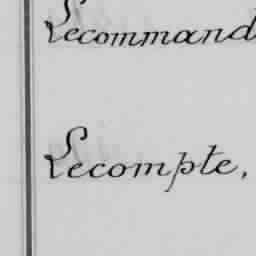 Lecommand
Lecompte,